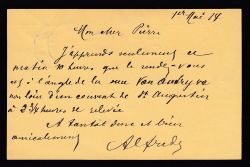 1er Mai 14
Mon cher Pierre
J'apprends seulement ce
matin 10 heures que le rendez-vous
est à l'angle de la rue
non loin du couvent de St Augustin
à 2 3/4 heures de relevée
A tantôt donc et bien
amicalement
Alfred